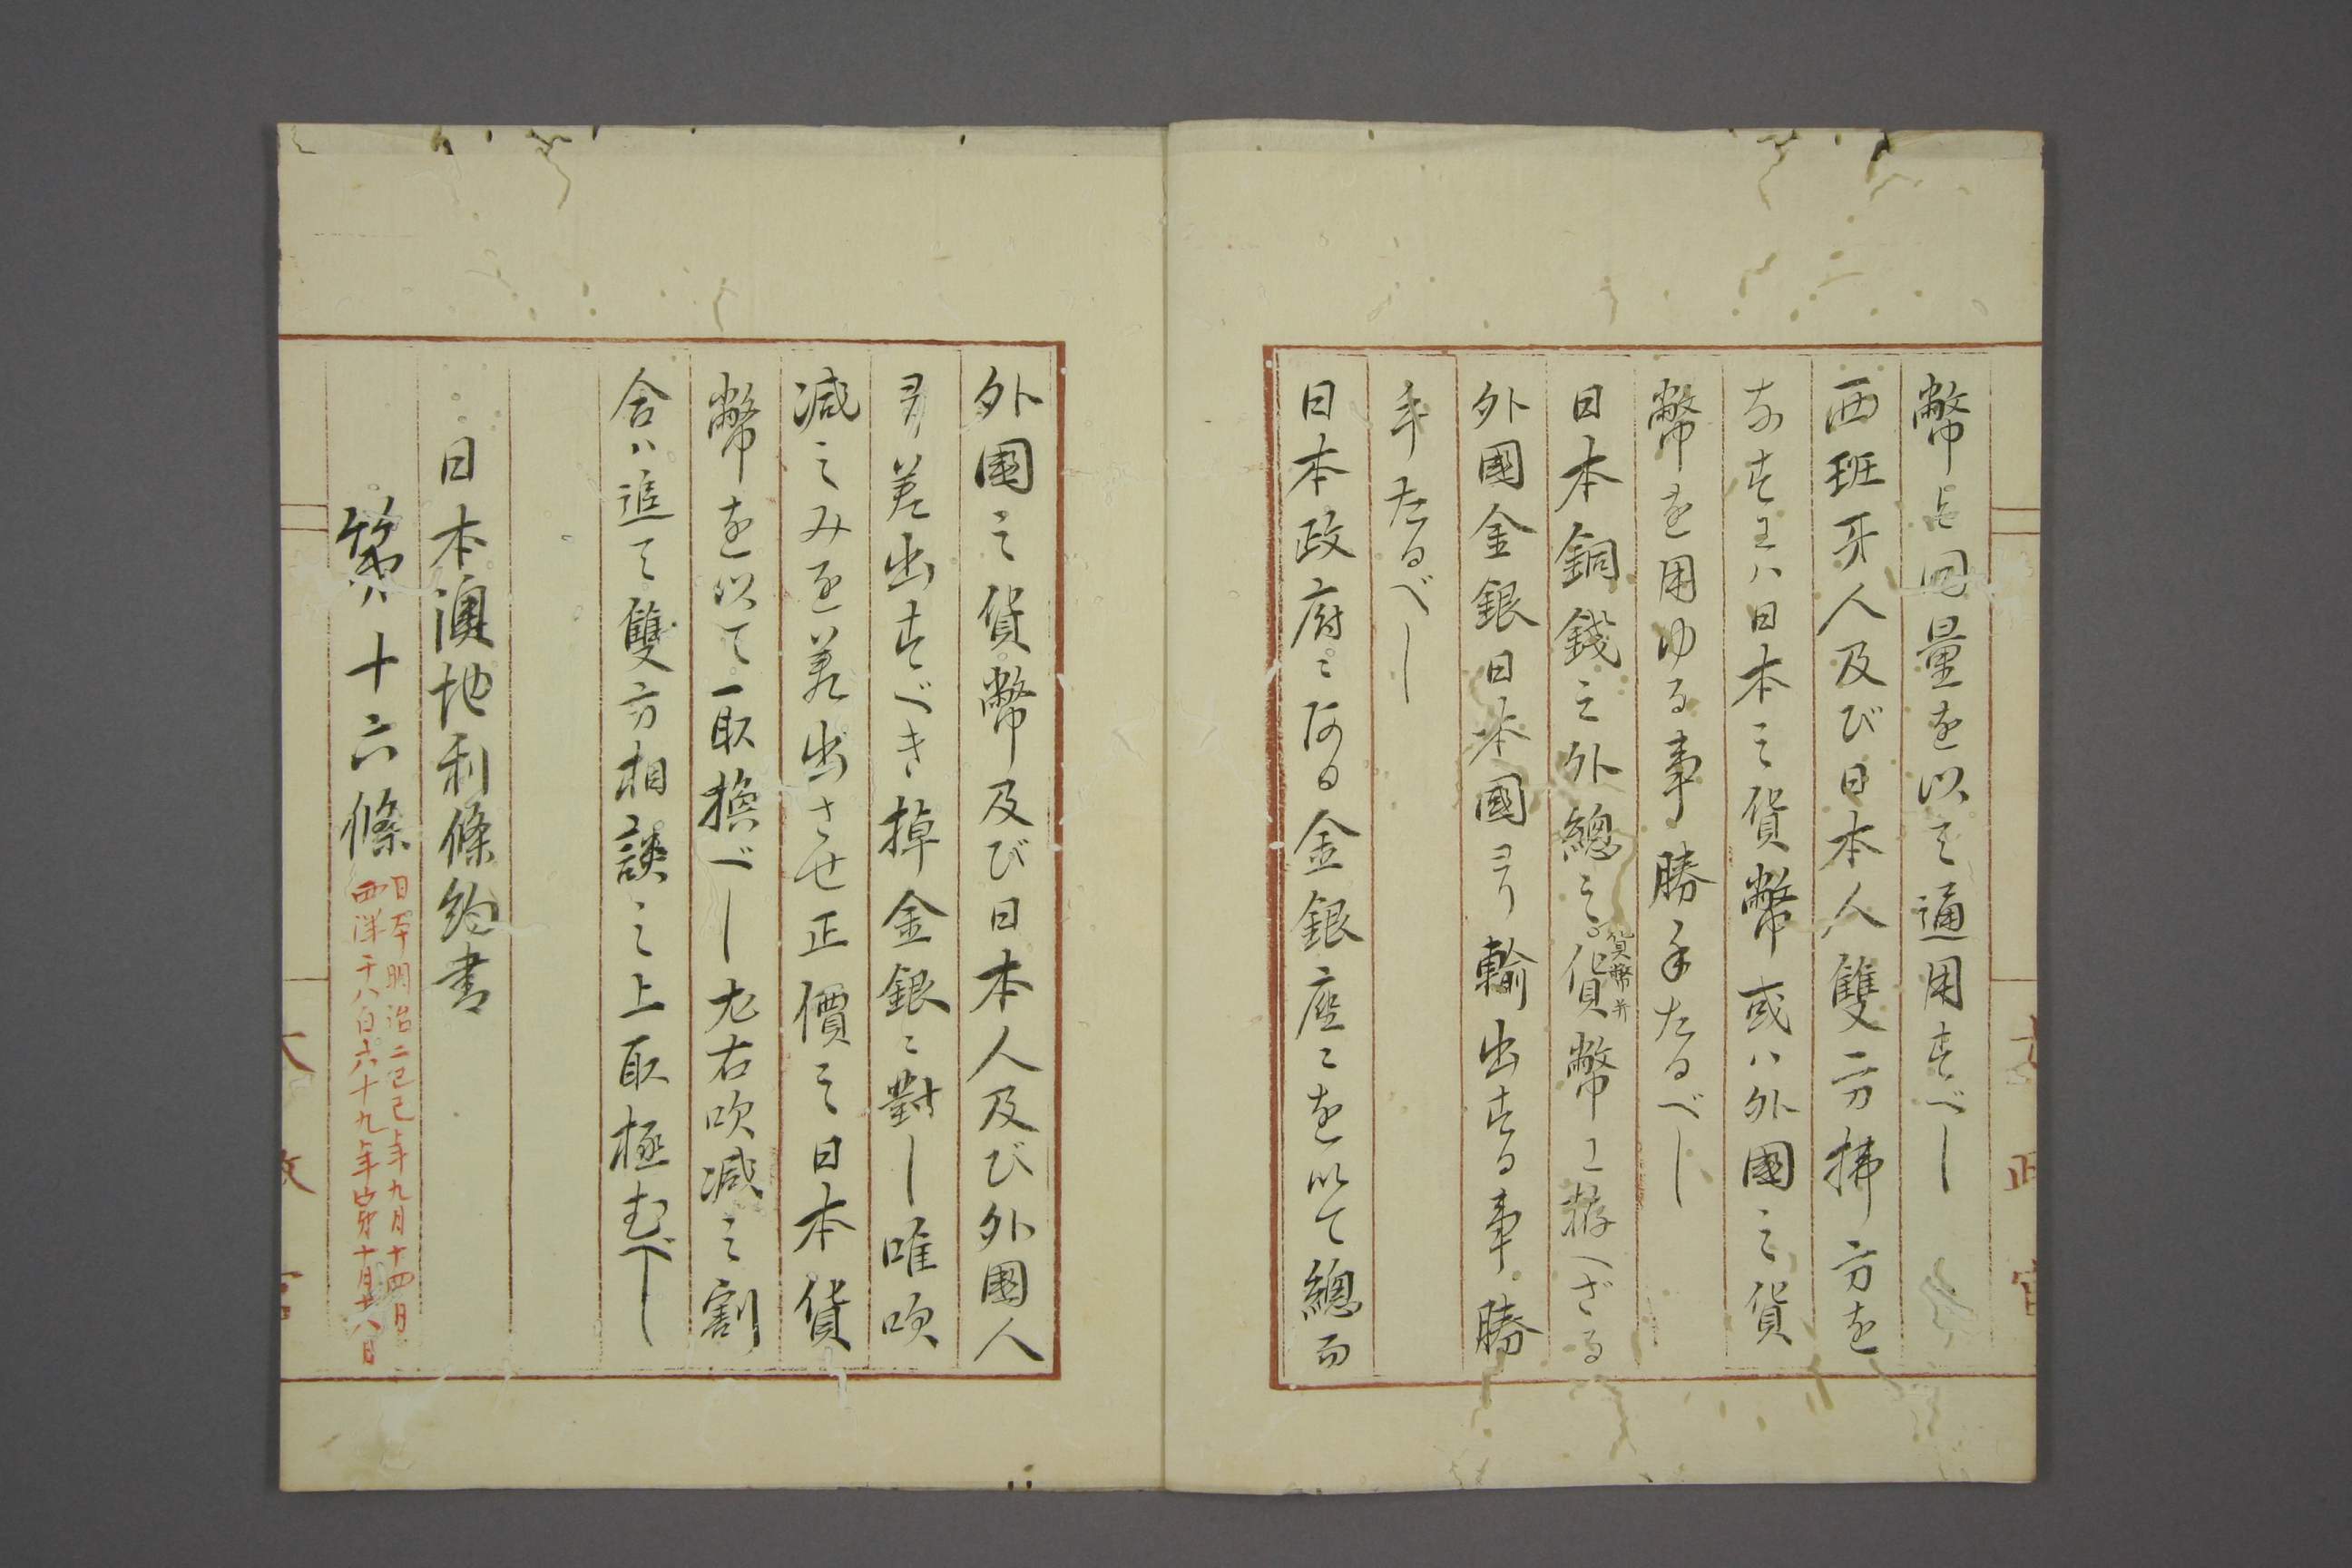 幣と同量を以て通用すべし
西班牙人及び日本人雙方拂方を
なすには日本之貨幣或ハ外國之貨
幣を用ゆる事勝手たるべし
日本銅錢之外總之貨幣に拵へざる
貨幣并
外國金銀日本國ヨリ輸出する事勝
手たるべし
日本政府ニある金銀座ニを以て總而
外國之貨幣及び日本人及び外國人
ヨリ差出すべき棹金銀ニ對し唯吹
減之みを差出させ正價之日本貨
幣を以て取換べし尤右吹減之割
合ハ追て雙方相談之上取極むべし
日本澳地利條約書
第十六條
日本明治二己巳年九月十四日
西洋千八百六十九年第十月十八日
太政官
太政官